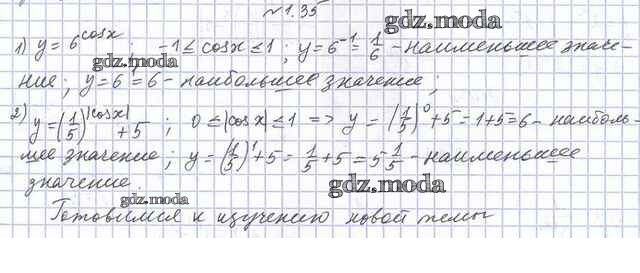 №1.35
gdz.moda
1) y = 6^cosx, -1 ≤ cosx ≤ 1; y = 6^-1 = 1/6 - наименьшее значе-
gdz.moda
ние; y = 6^1 = 6 - наибольшее значение;
2) y = (1/5)^|cosx| + 5; 0 ≤ |cosx| ≤ 1 => y = (1/5)^0 + 5 = 1+5=6 - наиболь-
шее значение; y = (1/5)^1 + 5 = 1/5 + 5 = 5 1/5 - наименьшее
значение.
gdz.moda
gdz.moda
Готовимся к изучению новой темы